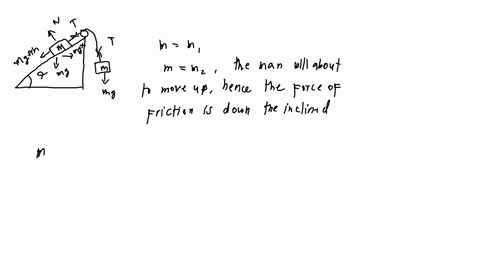 N
T
T
m
mg
m
mg
α
m = m₁
m = m₂, the man will about
to move up, hence the force of
friction is down the inclined
m